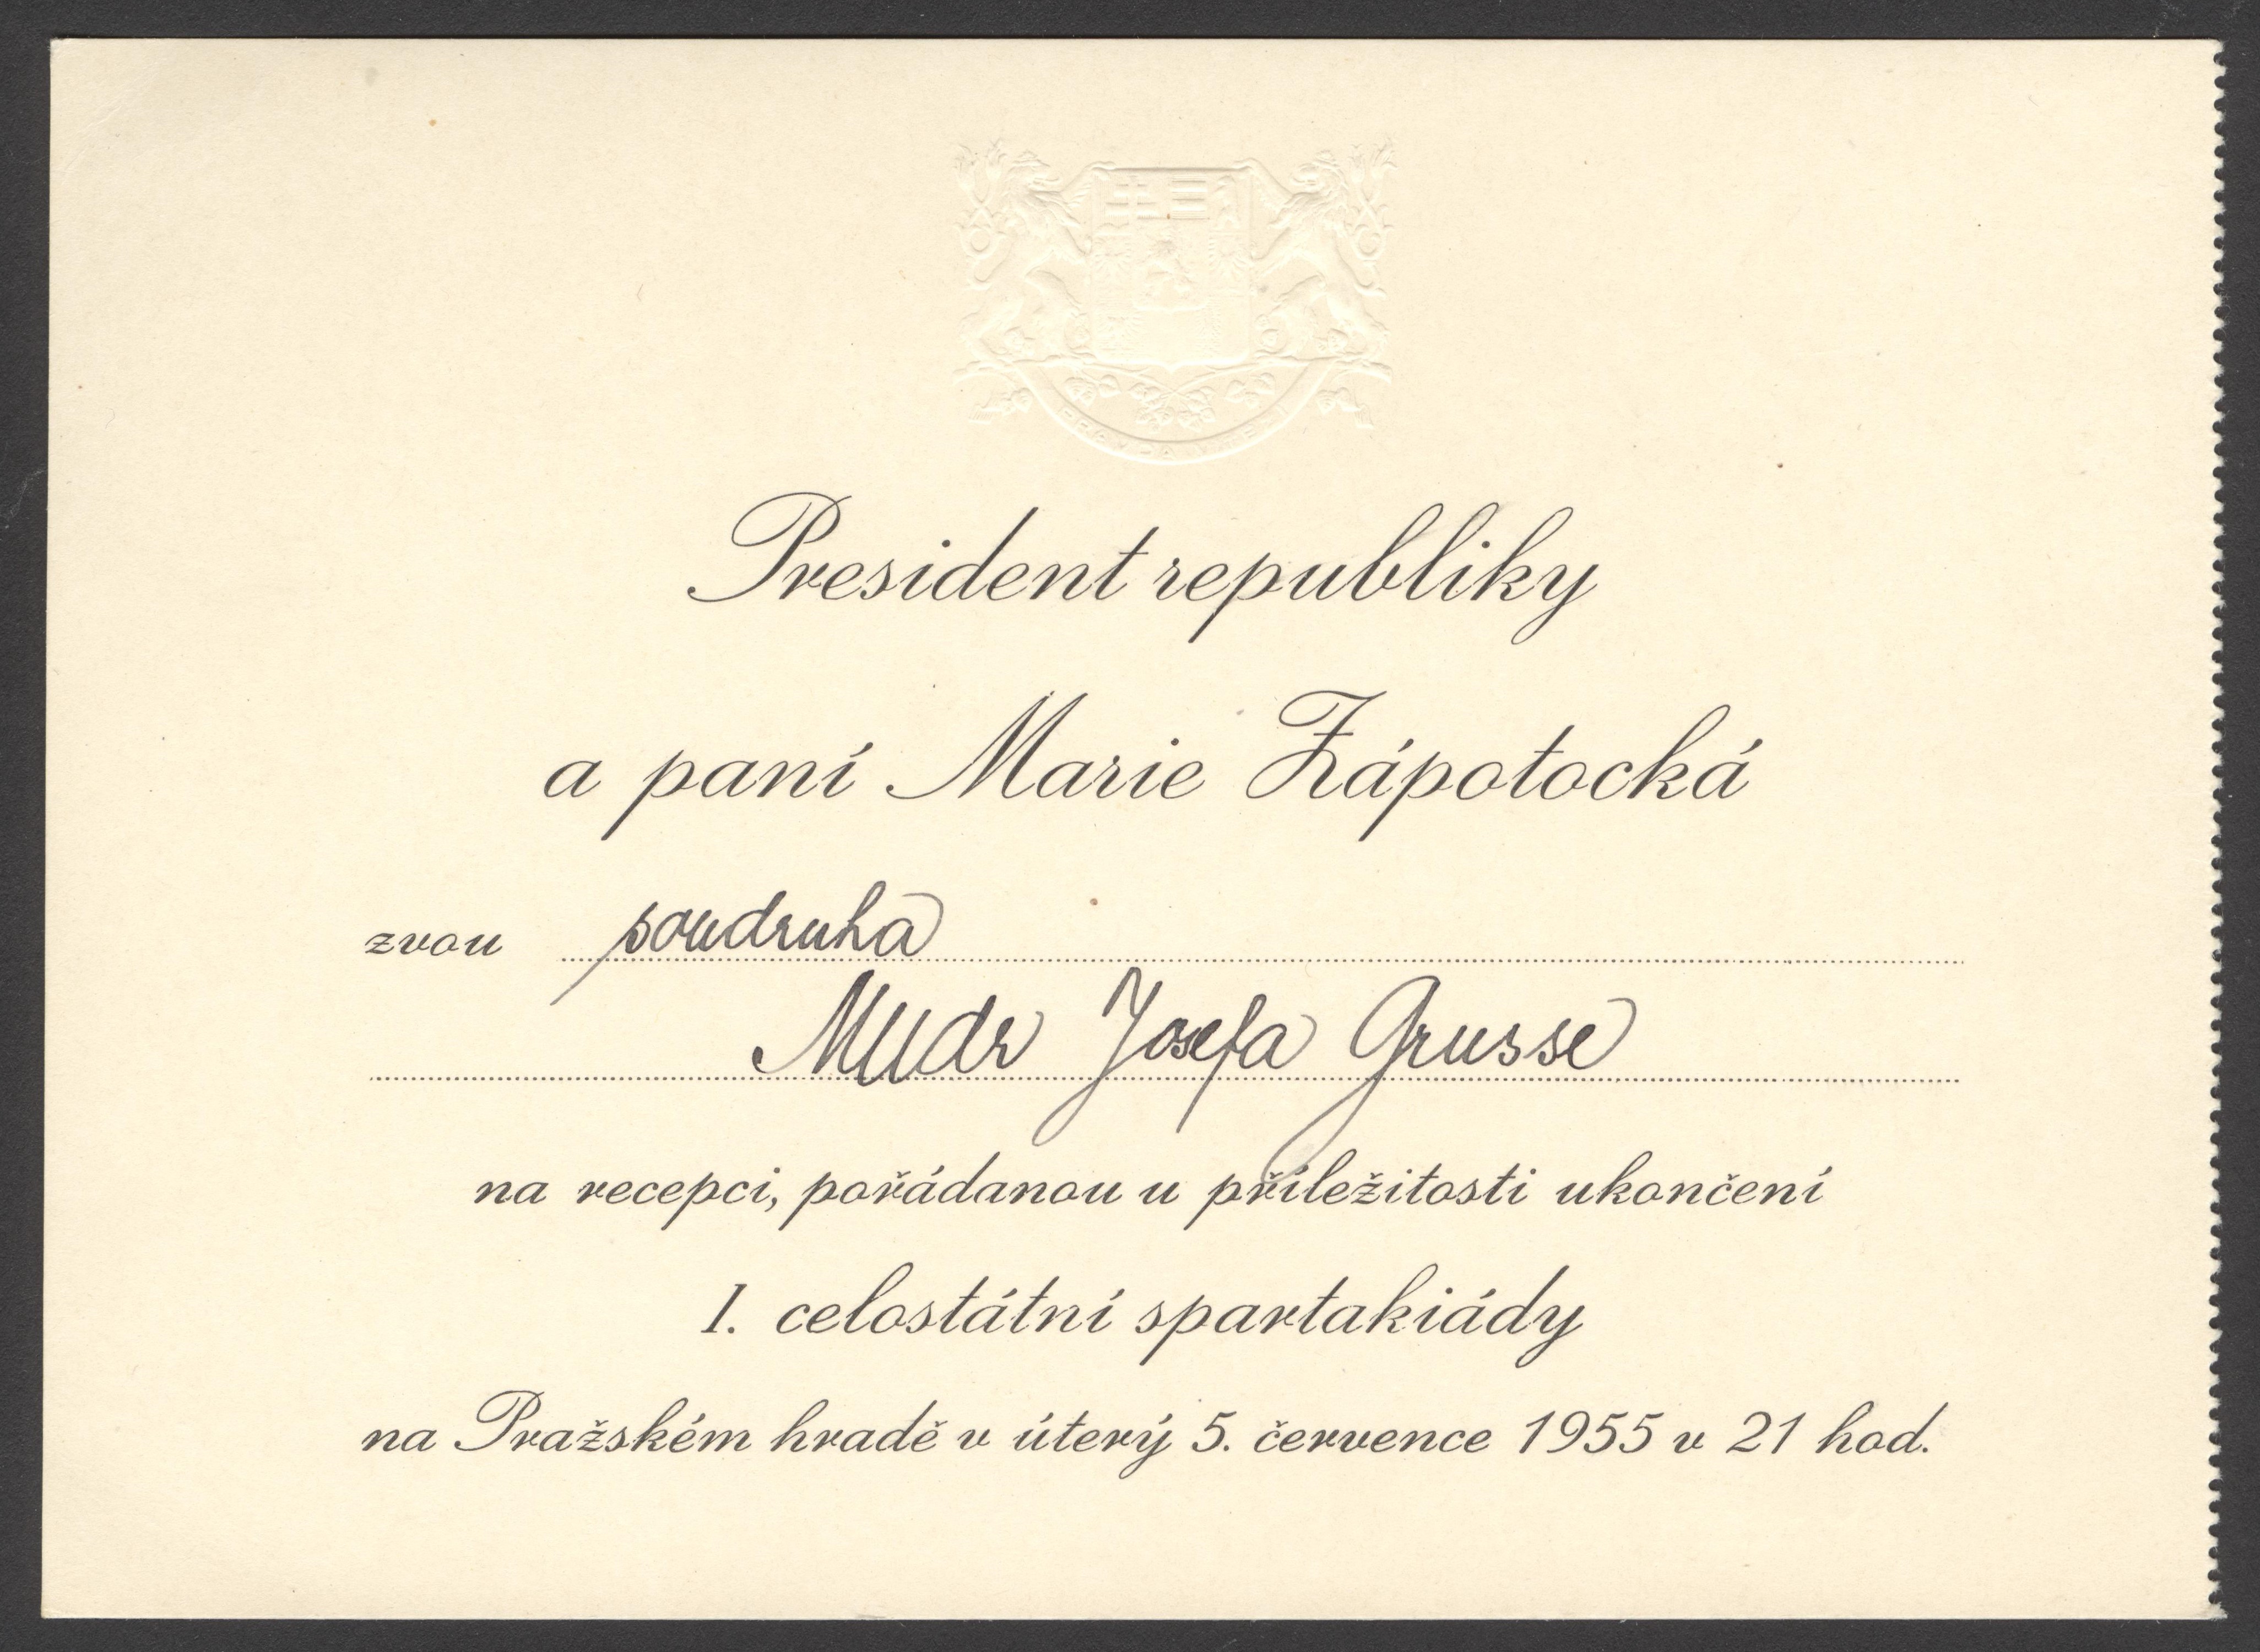 President republiky
a paní Marie Zápotocká
zvou soudruha
MUdr Josefa Grusse
na recepci, pořádanou u příležitosti ukončení
1. celostátní spartakiády
na Pražském hradě v úterý 5. července 1955 v 21 hod.